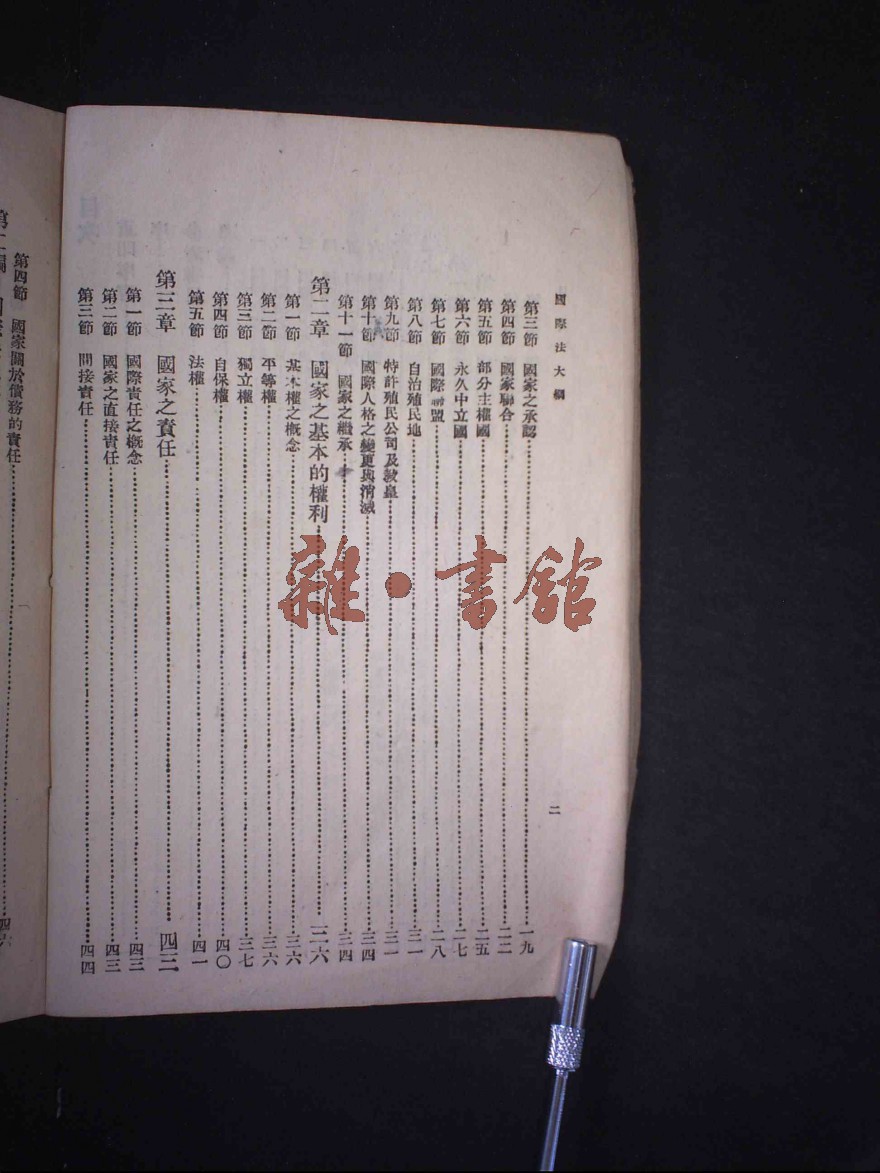 國際法大綱
二
第三節 國家之承認 一九
第四節 國家聯合 二二
第五節 部分主權國 二五
第六節 永久中立國 二七
第七節 國際聯盟 二八
第八節 自治殖民地 三一
第九節 特許殖民公司及敎皇 三一
第十節 國際人格之變更與消滅 三四
第十一節 國家之繼承 三四
第二章 國家之基本的權利 三六
第一節 基本權之概念 三六
第二節 平等權 三六
第三節 獨立權 三七
第四節 自保權 四〇
第五節 法權 四一
第三章 國家之責任 四三
第一節 國際責任之概念 四三
第二節 國家之直接責任 四三
第三節 間接責任 四四
第四節 國家關於債務的責任
雜·書館